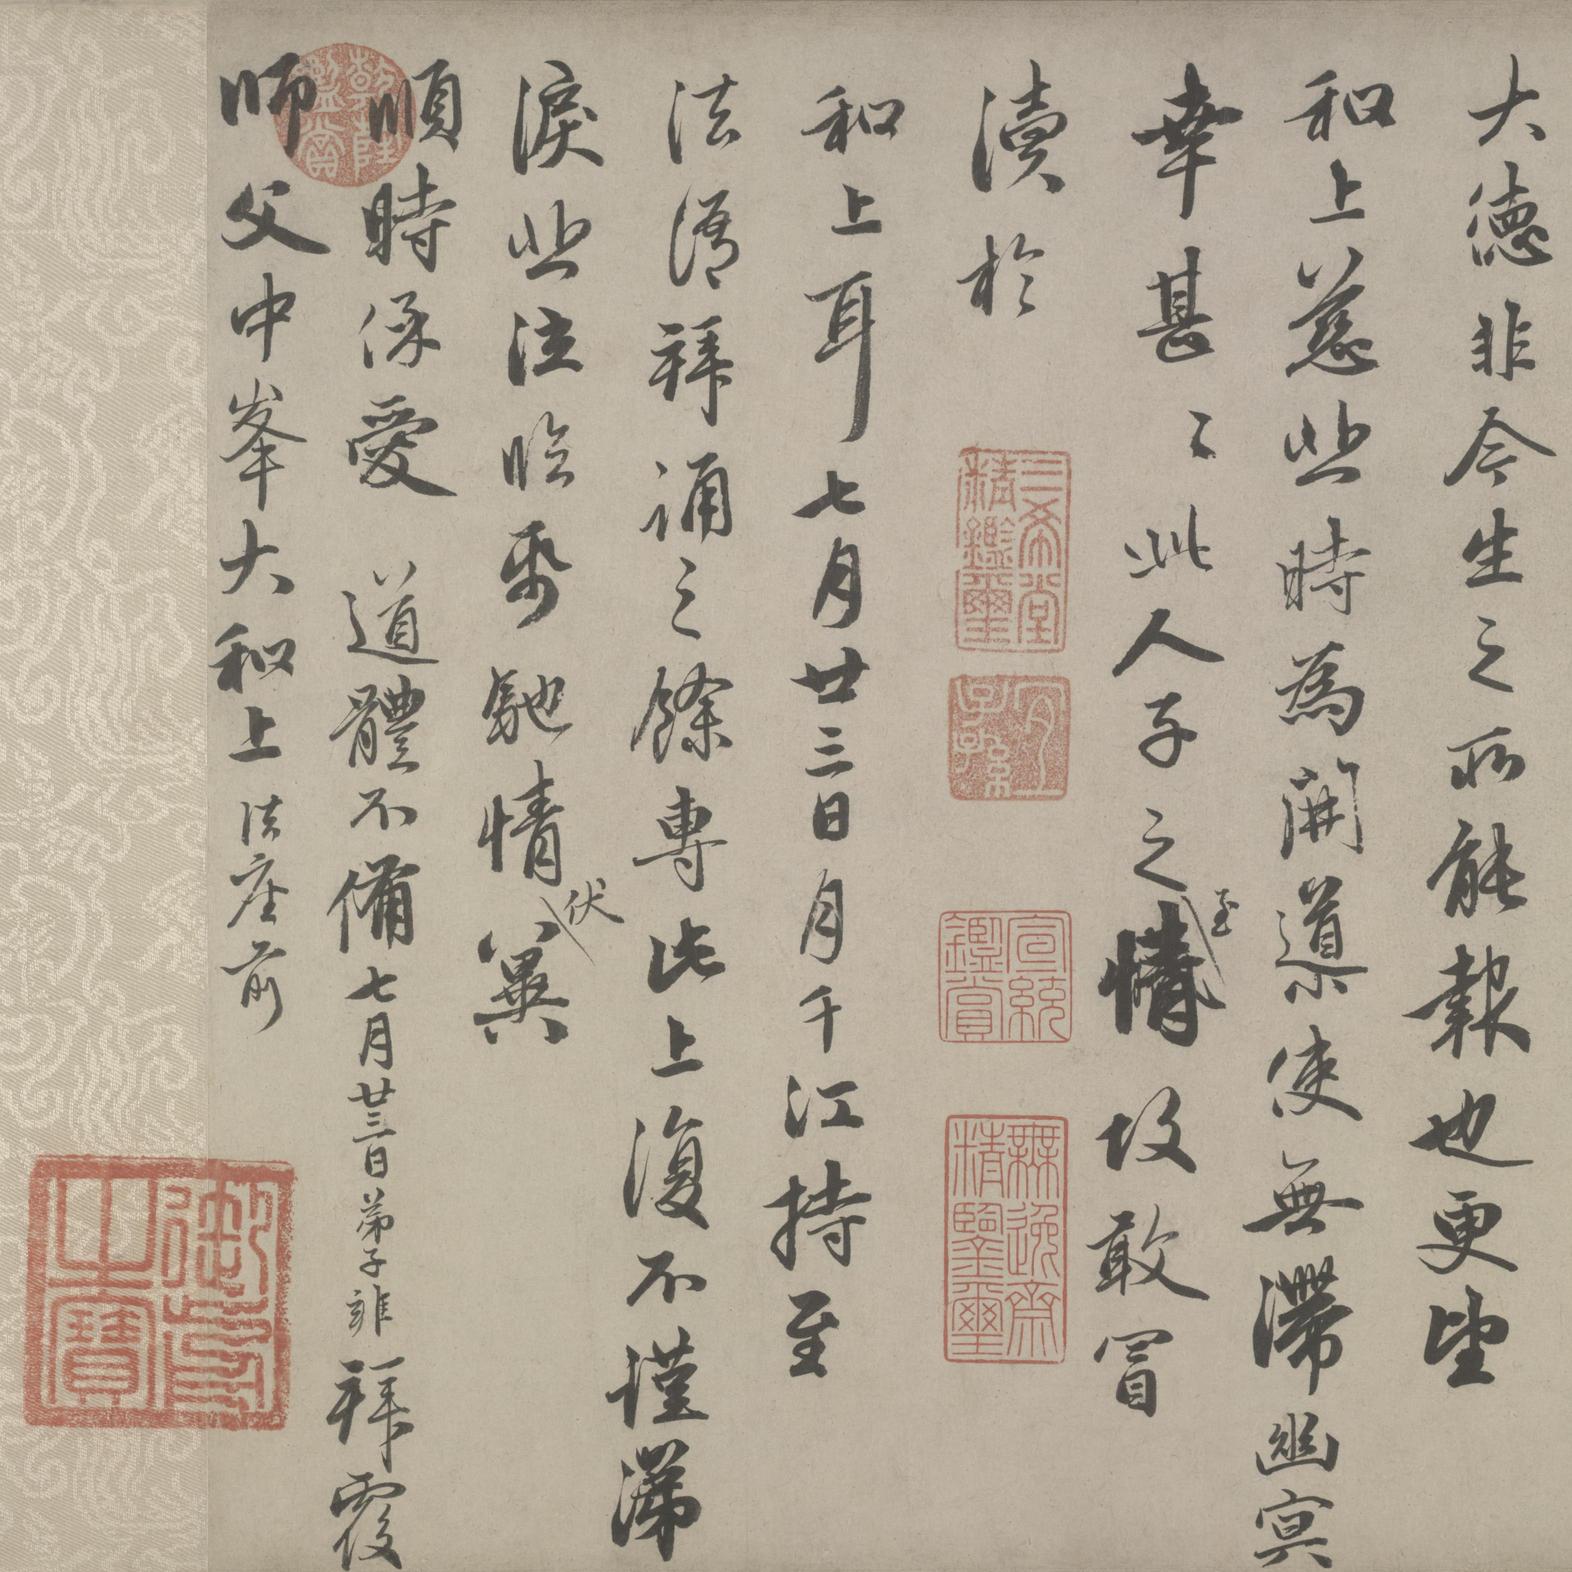 大德非今生之所能報也更望
和上慈悲時為開導使無滯幽冥
幸甚〻此人子之至情故敢冒
瀆於
和上耳七月廿三日月千江持至
法語拜誦之餘專此上復不謹涕
淚悲泣臨紙馳情伏冀
順時保愛 道體不備七月廿三日弟子雝拜覆
師父中峯大和上 法座前
乾隆鑑賞
三希堂精鑑璽
宜子孫
宣統鑑賞
無逸齋精鑒璽
御府之寶